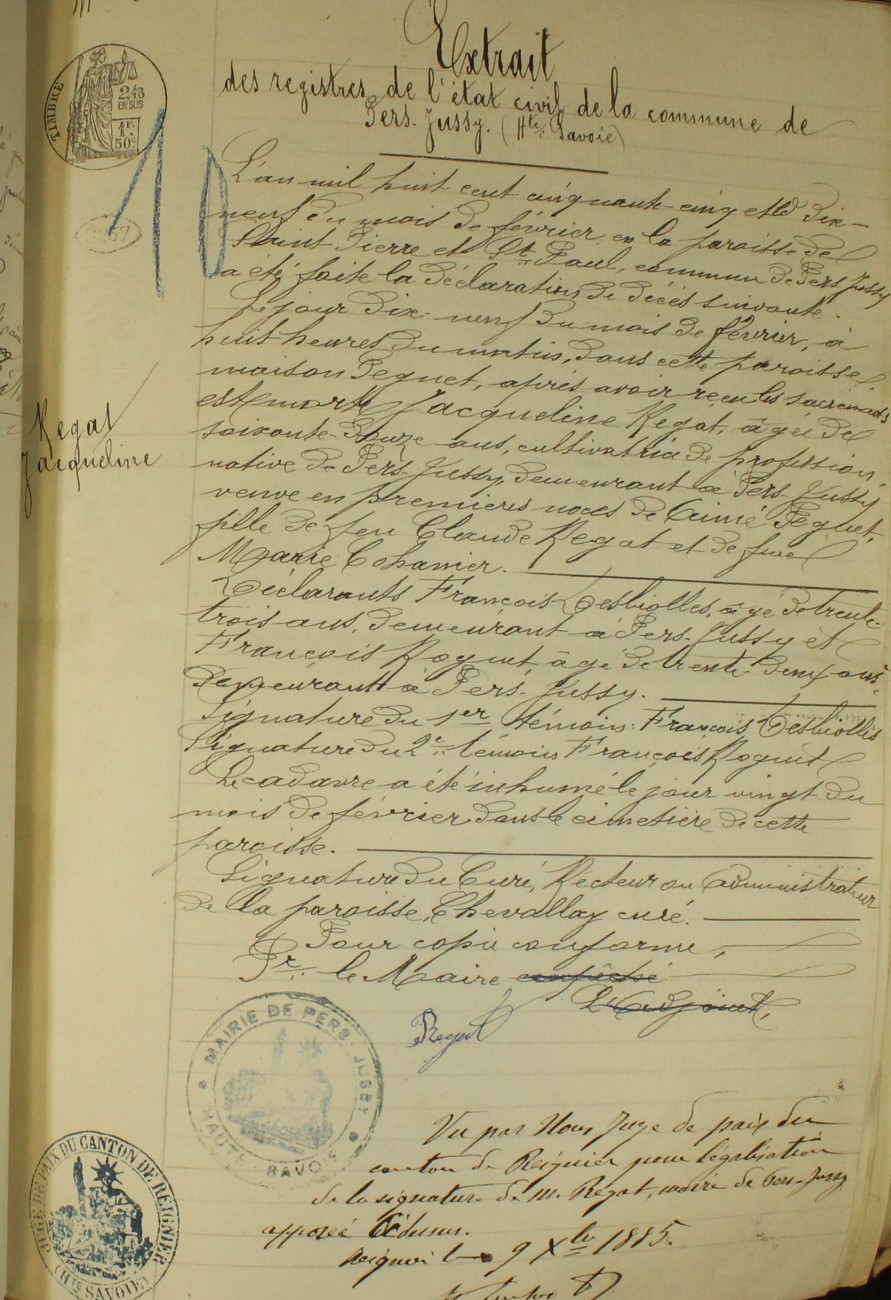 Extrait
des registres de l'état civil de la commune de
Pers-Jussy. (Hte Savoie)
TIMBRE
2/10
EN SUS
1F.
50c
10
L'an mil huit cent cinquante-cinq et le dix-
neuf du mois de février, en la paroisse de
Saint Pierre et St Paul, commune de Pers-Jussy
a été faite la déclaration de décès suivante.
Le jour dix-neuf du mois de février, à
huit heures du matin, dans cette paroisse
maison Peguet, après avoir reçu les sacrements
est morte Jacqueline Regat, âgée de
soixante-douze ans, cultivatrice de profession,
native de Pers-Jussy, demeurant à Pers-Jussy
veuve en premières noces de Aimé Peguet,
fille de feu Claude Regat et de feue
Marie Cohanier.
Regat
Jacqueline
Déclarants François Desbiolles, âgé de trente-
trois ans, demeurant à Pers-Jussy et
François Roguet âgé de trente-deux ans,
demeurant à Pers-Jussy.
Signature du 1er témoin: François Desbiolles
Signature du 2e témoin François Roguet
Le cadavre a été inhumé le jour vingt du
mois de février dans le cimetière de cette
paroisse.
Signature du Curé, Recteur ou Administrateur
de la paroisse, Chevallay curé.
Pour copie conforme,
Pr. le Maire empêché
L'Adjoint,
Regat
MAIRIE DE PERS-JUSSY
HAUTE-SAVOIE
Vu par Nous Juge de paix du
canton de Reignier pour légalisation
de la signature de M. Régat, maire de Pers-Jussy
apposée ci-dessus.
Reignier le 9 Xbre 1885.
JUGE DE PAIX DU CANTON DE REIGNIER
(HTE SAVOIE)